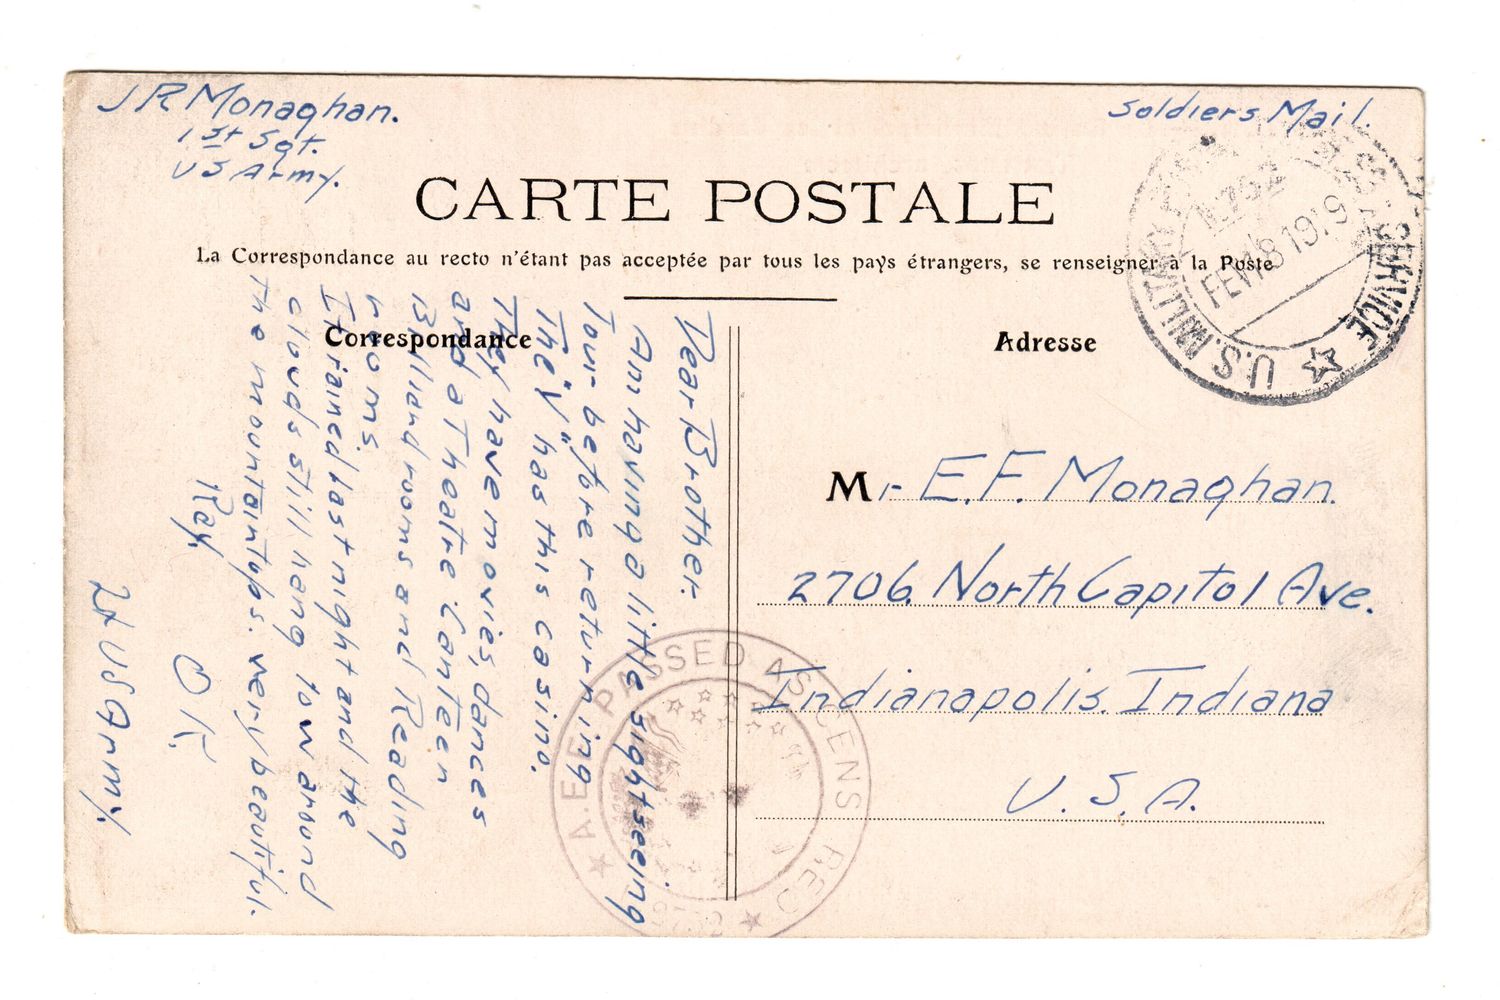 J R Monaghan.
1st Sgt.
US Army.
Soldiers Mail.
CARTE POSTALE
La Correspondance au recto n'étant pas acceptée par tous les pays étrangers, se renseigner à la Poste
Correspondance
Adresse
U.S. MILITARY SERVICE
1919
Dear Brother.
Am having a little sight seeing
Tour before returning
The "Y" has this casino.
They have movies, dances
and a Theatre Canteen
Billiard rooms and Reading
rooms.
It rained last night and the
clouds still hang low around
the mountain tops. very beautiful.
Ray.
O.K.
US Army.
Mr E. F. Monaghan.
2706. North Capitol Ave.
Indianapolis. Indiana
U. S. A.
A.E.F. PASSED AS CENSORED